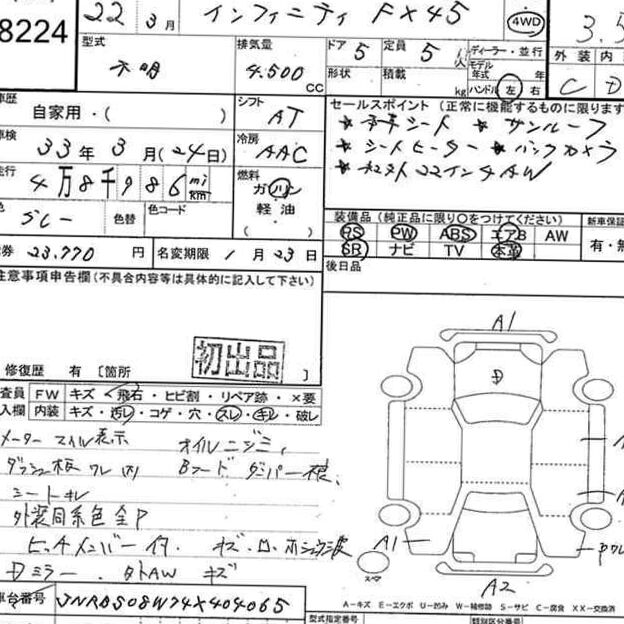 8224 22年 3月 インフィニティ FX45 4WD 3.5
型式 不明 排気量 4.500 CC ドア 5 定員 5人 ディーラー・並行
形状 積載 kg モデル年式 年 ハンドル 左 右
外装 内 C D
車歴 自家用・( ) シフト AT セールスポイント (正常に機能するものに限ります
車検 33年 3月 (24日) 冷房 AAC
* シートヒーター * バックカメラ
* サンルーフ
走行 4万8千986 mi km 燃料 ガソリン 軽油 ( )
色 グレー 色替 色コード
装備品 (純正品に限り○をつけてください) 新車保証
PS PW ABS エアB AW 有・無
SR ナビ TV 本革
券 23,770 円 名変期限 1月 23日
後日品
注意事項申告欄 (不具合内容等は具体的に記入して下さい)
初出品
修復歴 有 〔箇所
査員 FW キズ・飛石・ヒビ割・リペア跡・×要
入欄 内装 キズ・汚レ・コゲ・穴・スレ・キレ・破レ
メーター マイル表示 オイルニジミ
ダッシュ板 ワレ
シートキレ
外装同系色全P
ヒッチメンバー付
Dミラー、タイAW キズ
A1
D
A1
A2
スペア
A-キズ E-エクボ U-凹み W-補修跡 S-サビ C-腐食 XX-交換済
車台番号 JNRBS08W74X404065
型式指定番号 類別区分番号